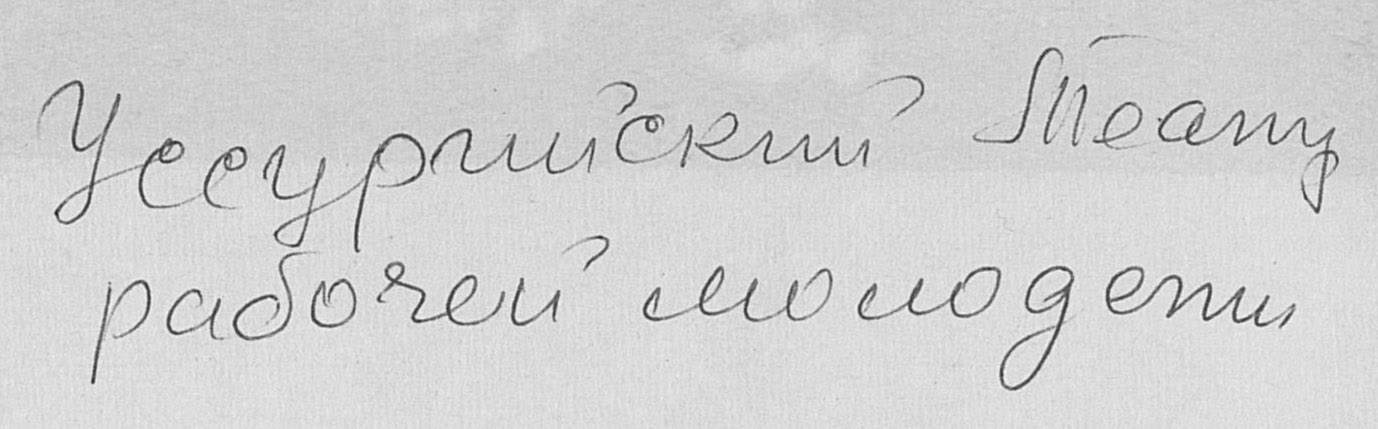 Уссурийский Театр
рабочей молодежи